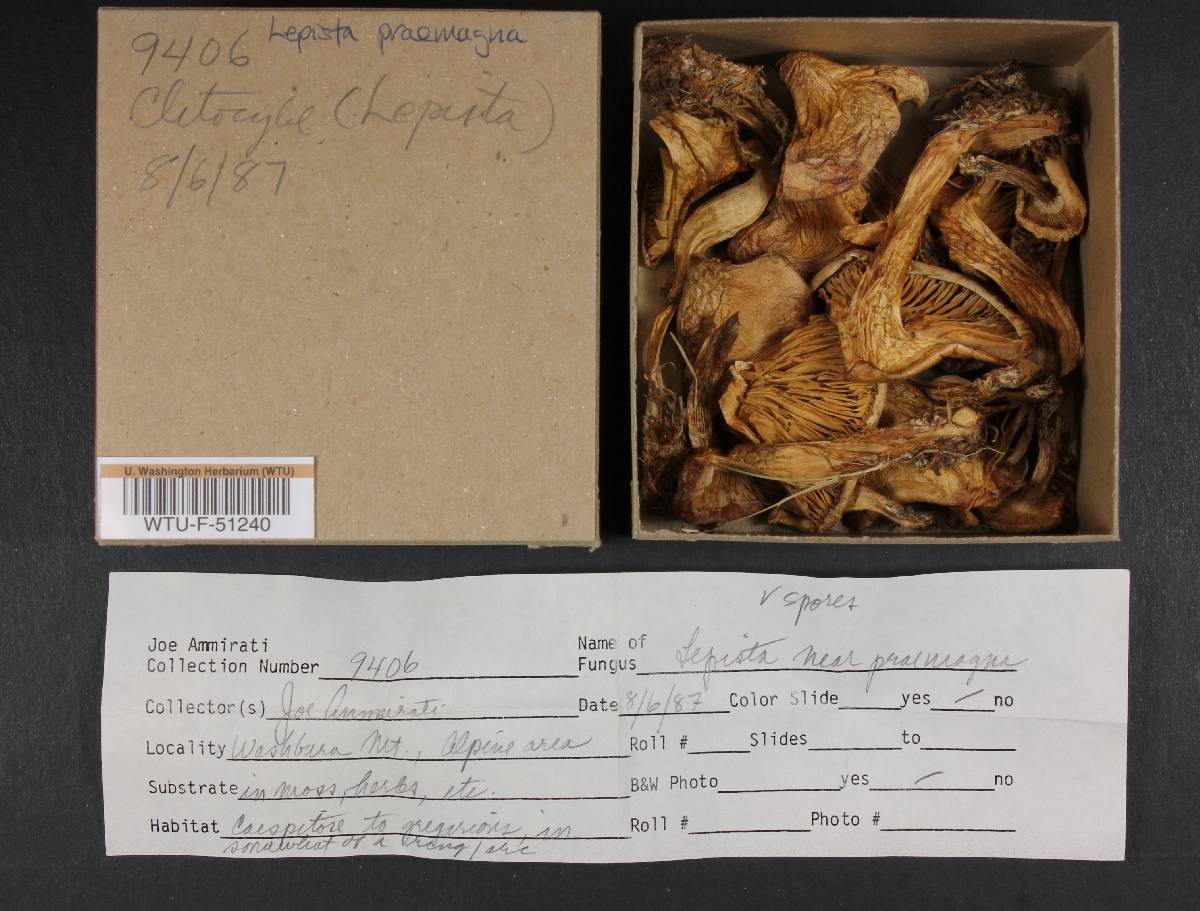 Lepista praemagna
9406
Clitocybe (Lepista)
8/6/87
U. Washington Herbarium (WTU)
WTU-F-51240
✓ spores
Joe Ammirati
Collection Number 9406
Name of Fungus Lepista near praemagna
Collector(s) Joe Ammirati
Date 8/6/87 Color Slide yes / no
Locality Washburn Mt., Alpine area
Roll # Slides to
Substrate in moss, herbs, etc.
B&W Photo yes / no
Habitat Caespitose to gregarious, in
somewhat of a
Roll # Photo #